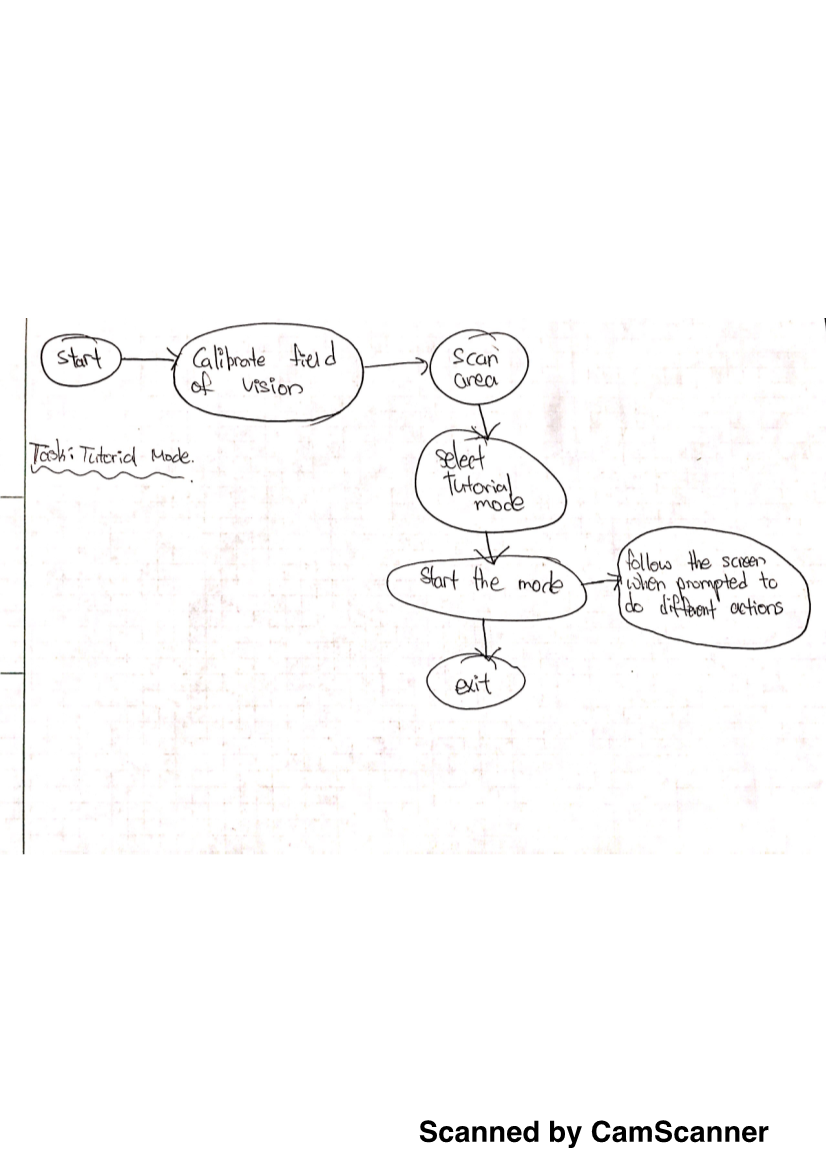 Start
Calibrate field
of vision
Scan
area
Task: Tutorial Mode.
Select
Tutorial
mode
Start the mode
follow the screen
when prompted to
do different actions
exit
Scanned by CamScanner